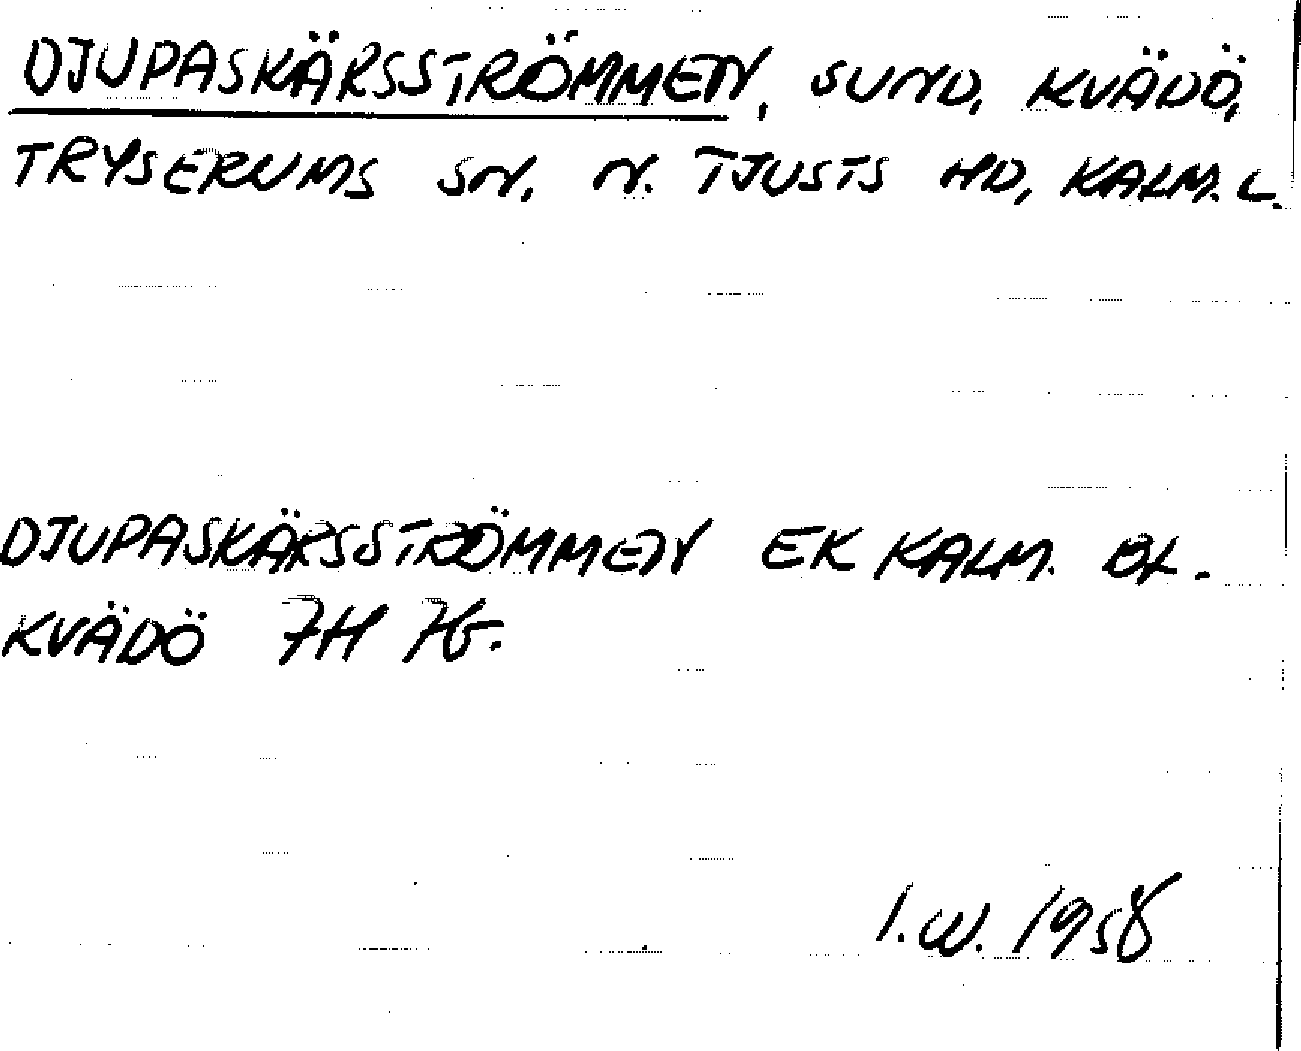 DJUPASKÄRSSTRÖMMEN, SUND, KVÄDÖ,
TRYSERUMS SN, N. TJUSTS HD, KALM. L.
DJUPASKÄRSSTRÖMMEN EK KALM. BL.
KVÄDÖ 7H 7G.
I.W. 1958